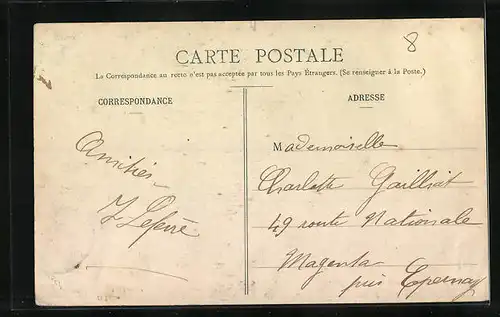 8
CARTE POSTALE
La Correspondance au recto n'est pas acceptée par tous les Pays Étrangers. (Se renseigner à la Poste.)
CORRESPONDANCE
ADRESSE
Amitiés
Mademoiselle
Charlotte
49 route Nationale
Magenta
près Epernay